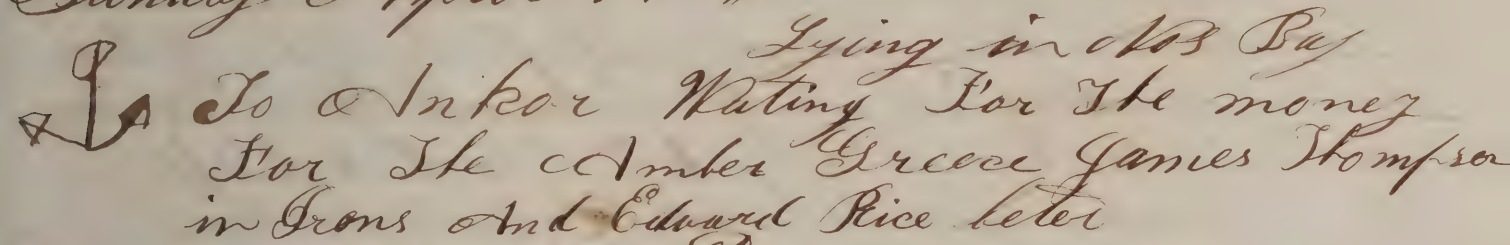 Lying in Nos Bay
To Ankor Wating For The money
For The Amber Greece James Thompson
in Irons And Edward Rice beter